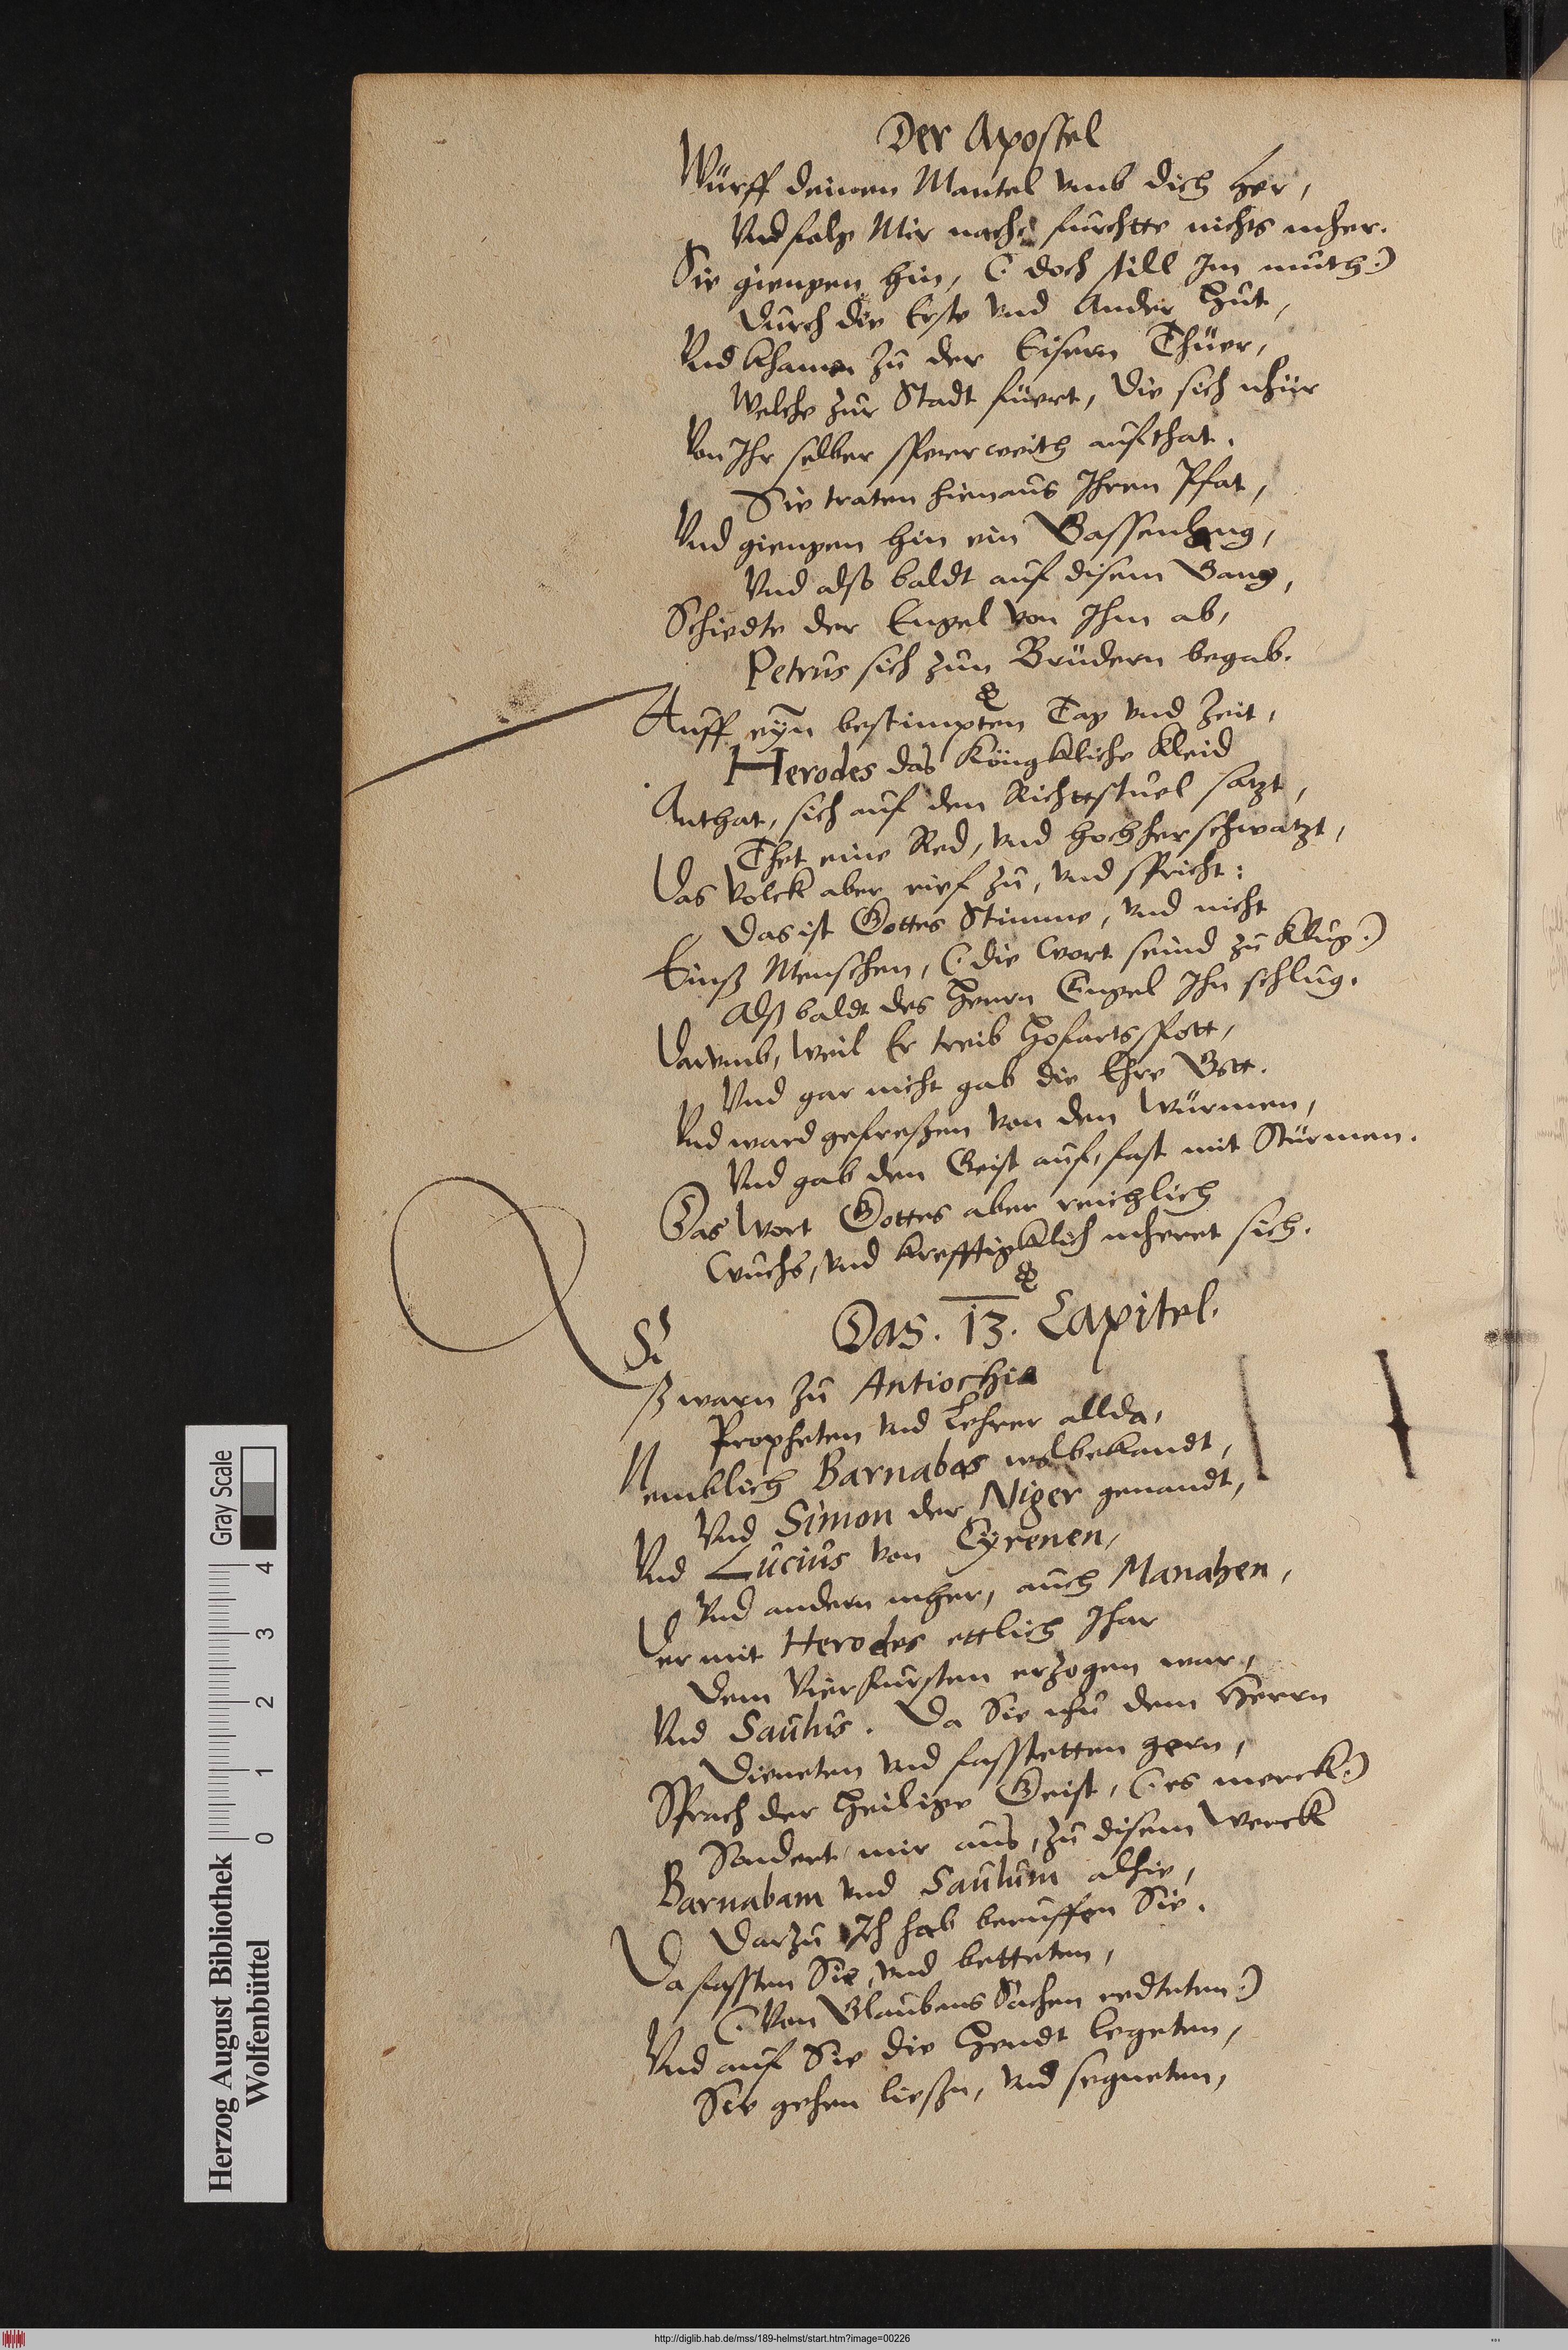 Der Apostel
Würff deinen Mantel vmb dich her,
Vnd folg Mir nach, furchtte nichts mher.
Sie giengen hin, (: doch still Im muth :)
Durch die Erste vnd Ander Hut,
Vnd khamen zu der Eisern Thüer,
Welche zur Stadt füert, die sich nhür
Von Ihr selber sperrweith aufthat.
Sie traten hienaus Ihren Pfat,
Vnd giengen hin ein Gassenlang,
Vnd also baldt auf disem Gang,
Schiedte der Engel von Ihm ab,
Petrus sich zun Brüdern begab.
Auff eyn bestimpten Tag vnd Zeit,
Herodes das Köngkliche Kleid
Anthat, sich auf den Richttstuel satzt,
Thet eine Red, vnd hochherschwatzt,
Das Volck aber rief zu, vnd spricht:
Das ist Gottes Stimme, vnd nicht
Einß Menschen, (: die Wort seind zu Klug :)
Alß baldt des Herrn Engel Ihn schlug.
Darvmb, weil Er treib Hofartsspott,
Vnd gar nicht gab die Ehre Gott.
Vnd ward gefreßen von den Würmen,
Vnd gab den Geist auf, fast mit Stürmen.
Das Wort Gottes aber reichlich
Wuchs, vnd krefftigklich mheret sich.
Das. 13. Capitel.
Eß warn zu Antiochia
Propheten vnd Lehrer allda,
Nemblich Barnabas wolbekandt,
Vnd Simon der Niger genandt,
Vnd Lucius von Cyrenen,
Vnd andern mher, auch Manahen,
Der mit Herodes ettlich Ihar
Dem Vierfursten erzogen war,
Vnd Saulus. Da Sie nhu dem Herrn
Dieneten vnd fasstetten gern,
Sprach der Heilige Geist, (: es merck :)
Sondert mir aus, zu disem Werck
Barnabam vnd Saulum alhie,
Darzu Ich hab beruffen Sie.
Da fassten Sie, vnd betteten,
(: Von Glaubens Sachen redteten :)
Vnd auf Sie die Hendt legeten,
Sie gehen ließn, vnd segneten,
Herzog August Bibliothek
Wolfenbüttel
0 1 2 3 4
Gray Scale
http://diglib.hab.de/mss/189-helmst/start.htm?image=00226